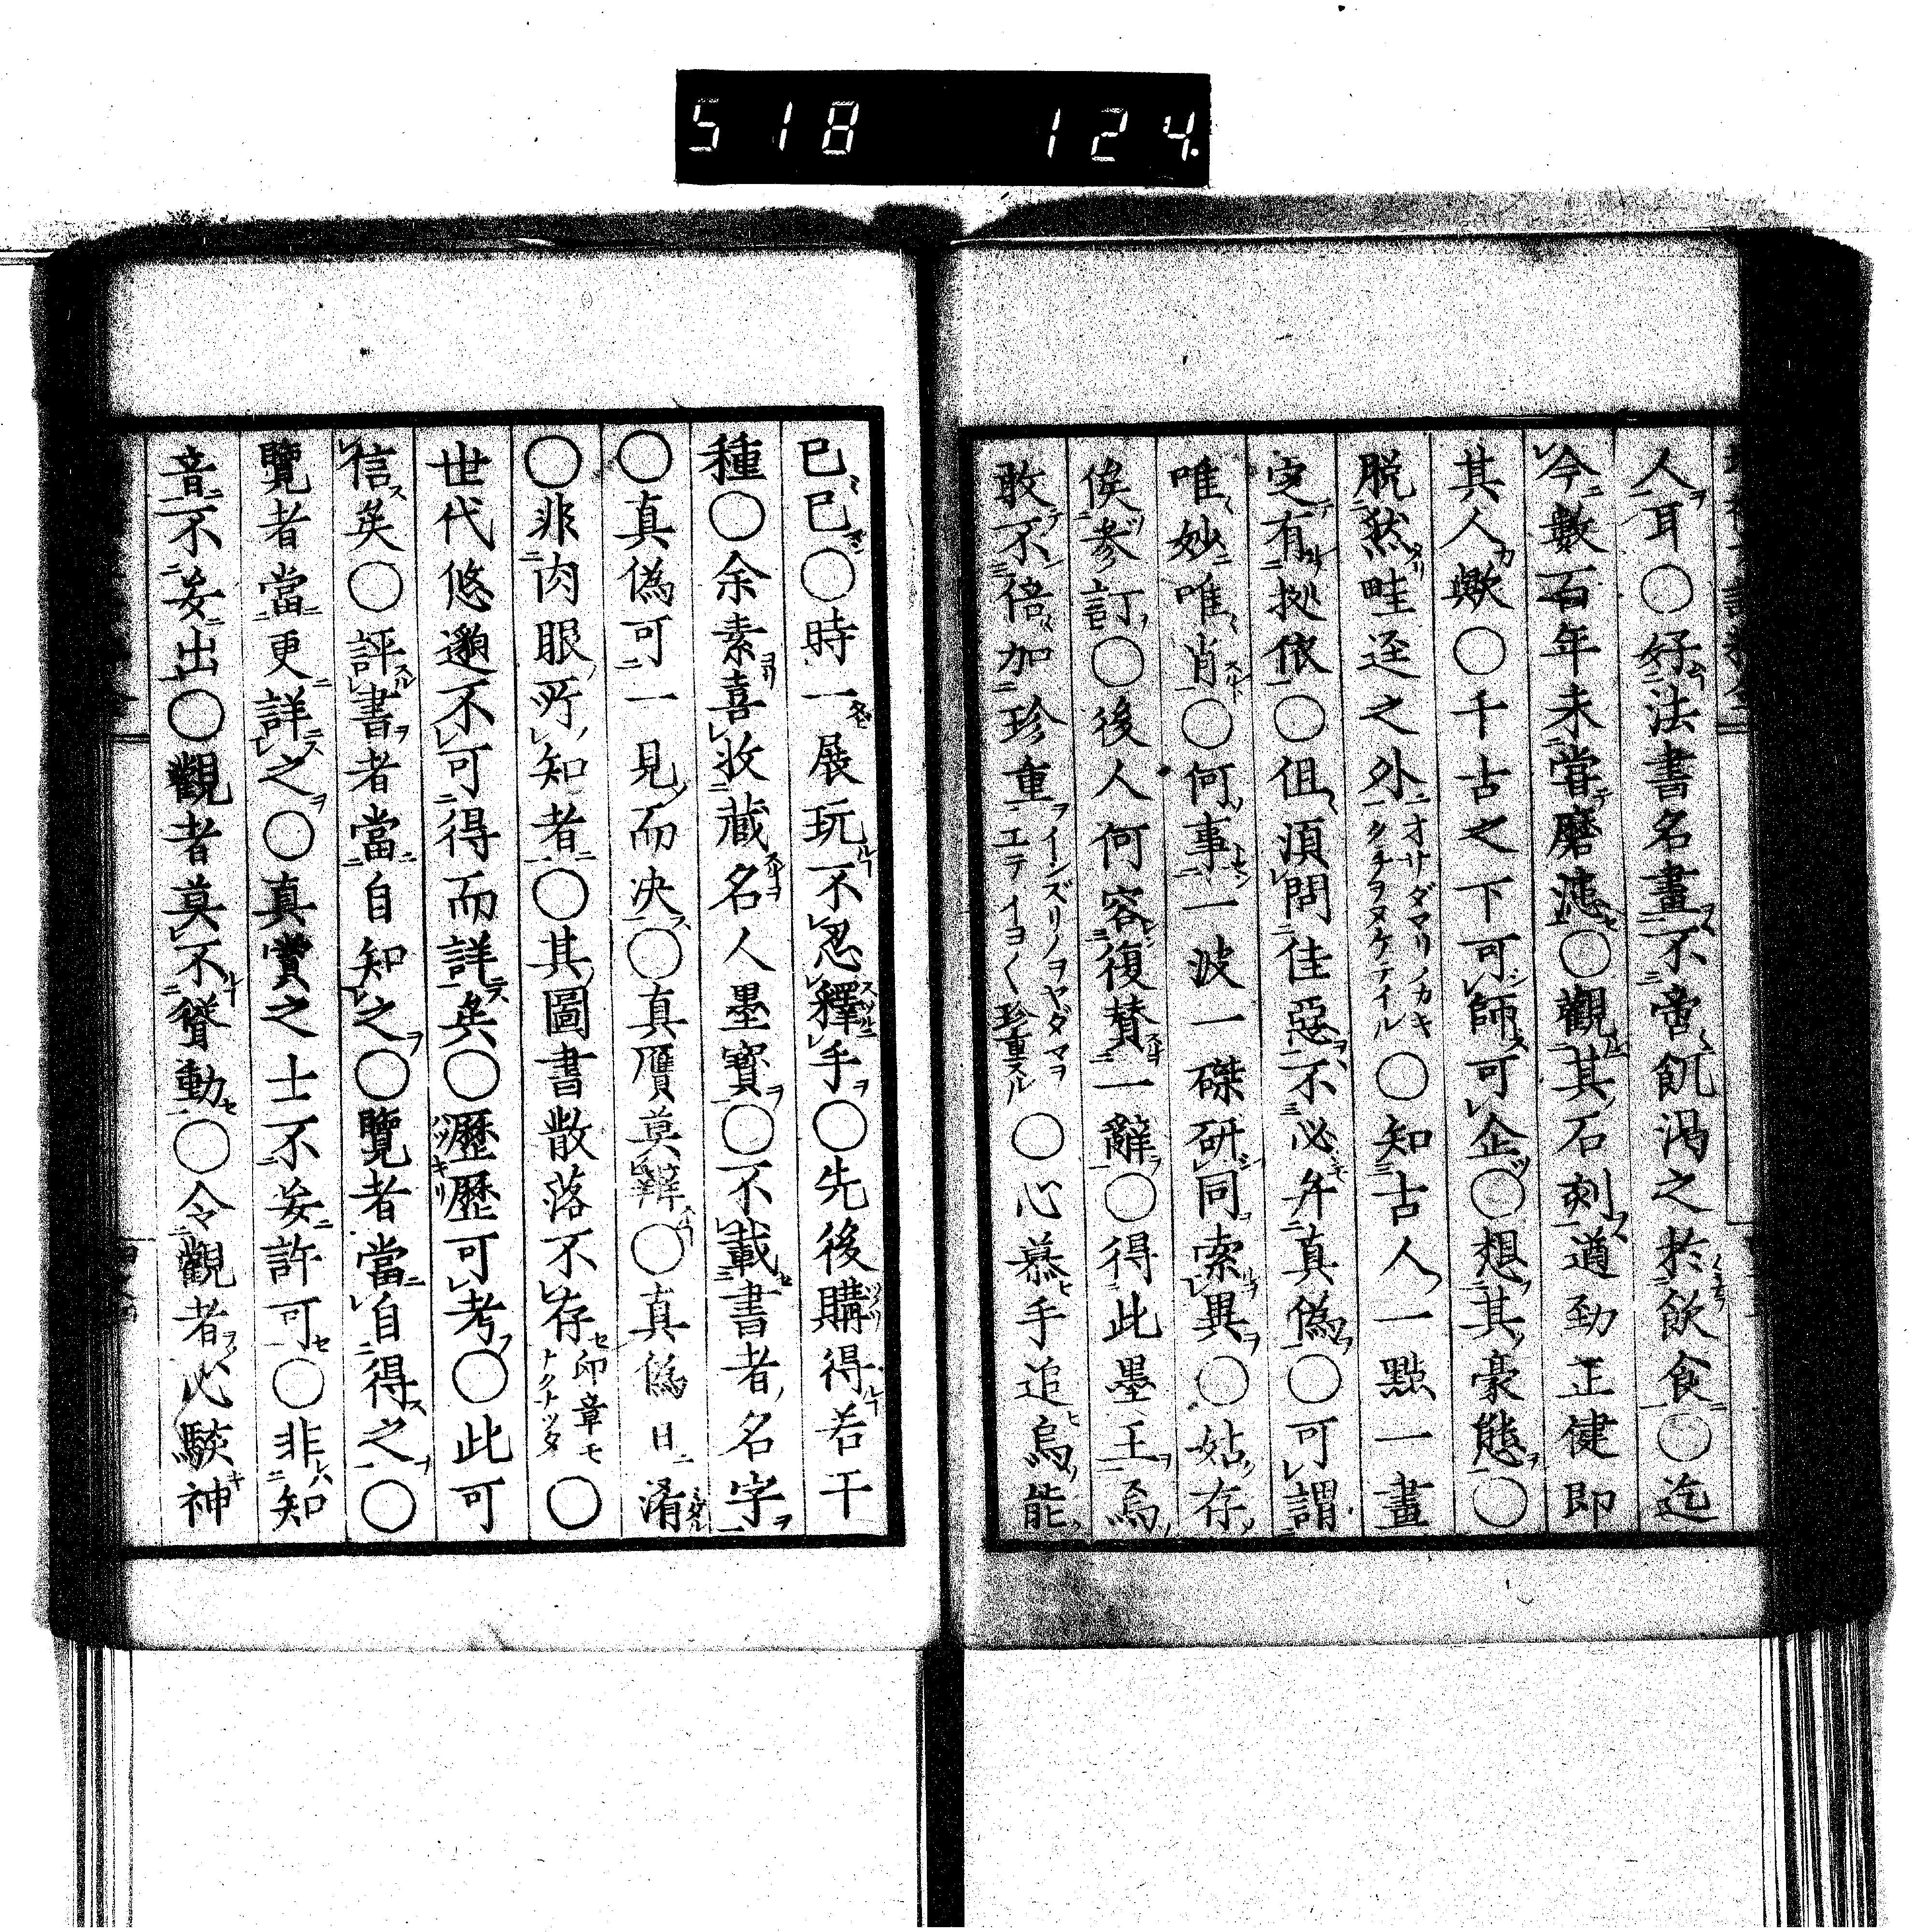 518 124
人耳○好法書名畫不啻飢渴之於飲食○迄
今數百年未嘗磨滅○觀其石刻遒勁正健即
其人歟○千古之下可師可企○想其豪態○
脱然畦逕之外オサダマリノカキカタチヲヌケテイル○知古人一點一畫
定有拠依○但須問佳惡不必弁真偽○可謂
唯妙唯肖○何事一波一磔研同索異○姑存
俟參訂○後人何容復賛一辭○得此墨王焉
敢不倍加珍重イシズリノヲヤダマヲエテイヨ〱珍重スル○心慕手追烏能
已已○時一展玩不忍釋手○先後購得若干
種○余素喜收藏名人墨寶○不載書者名字
○真偽可一見而决○真贋莫辯○真偽日淆
○非肉眼所知者○其圖書散落不存印章モナクナツタ○
世代悠邈不可得而詳矣○歷歷可考○此可
信矣○評書者當自知之○覽者當自得之○
覽者當更詳之○真賞之士不妄許可○非知
音不妄出○觀者莫不聳動○令觀者心駭神